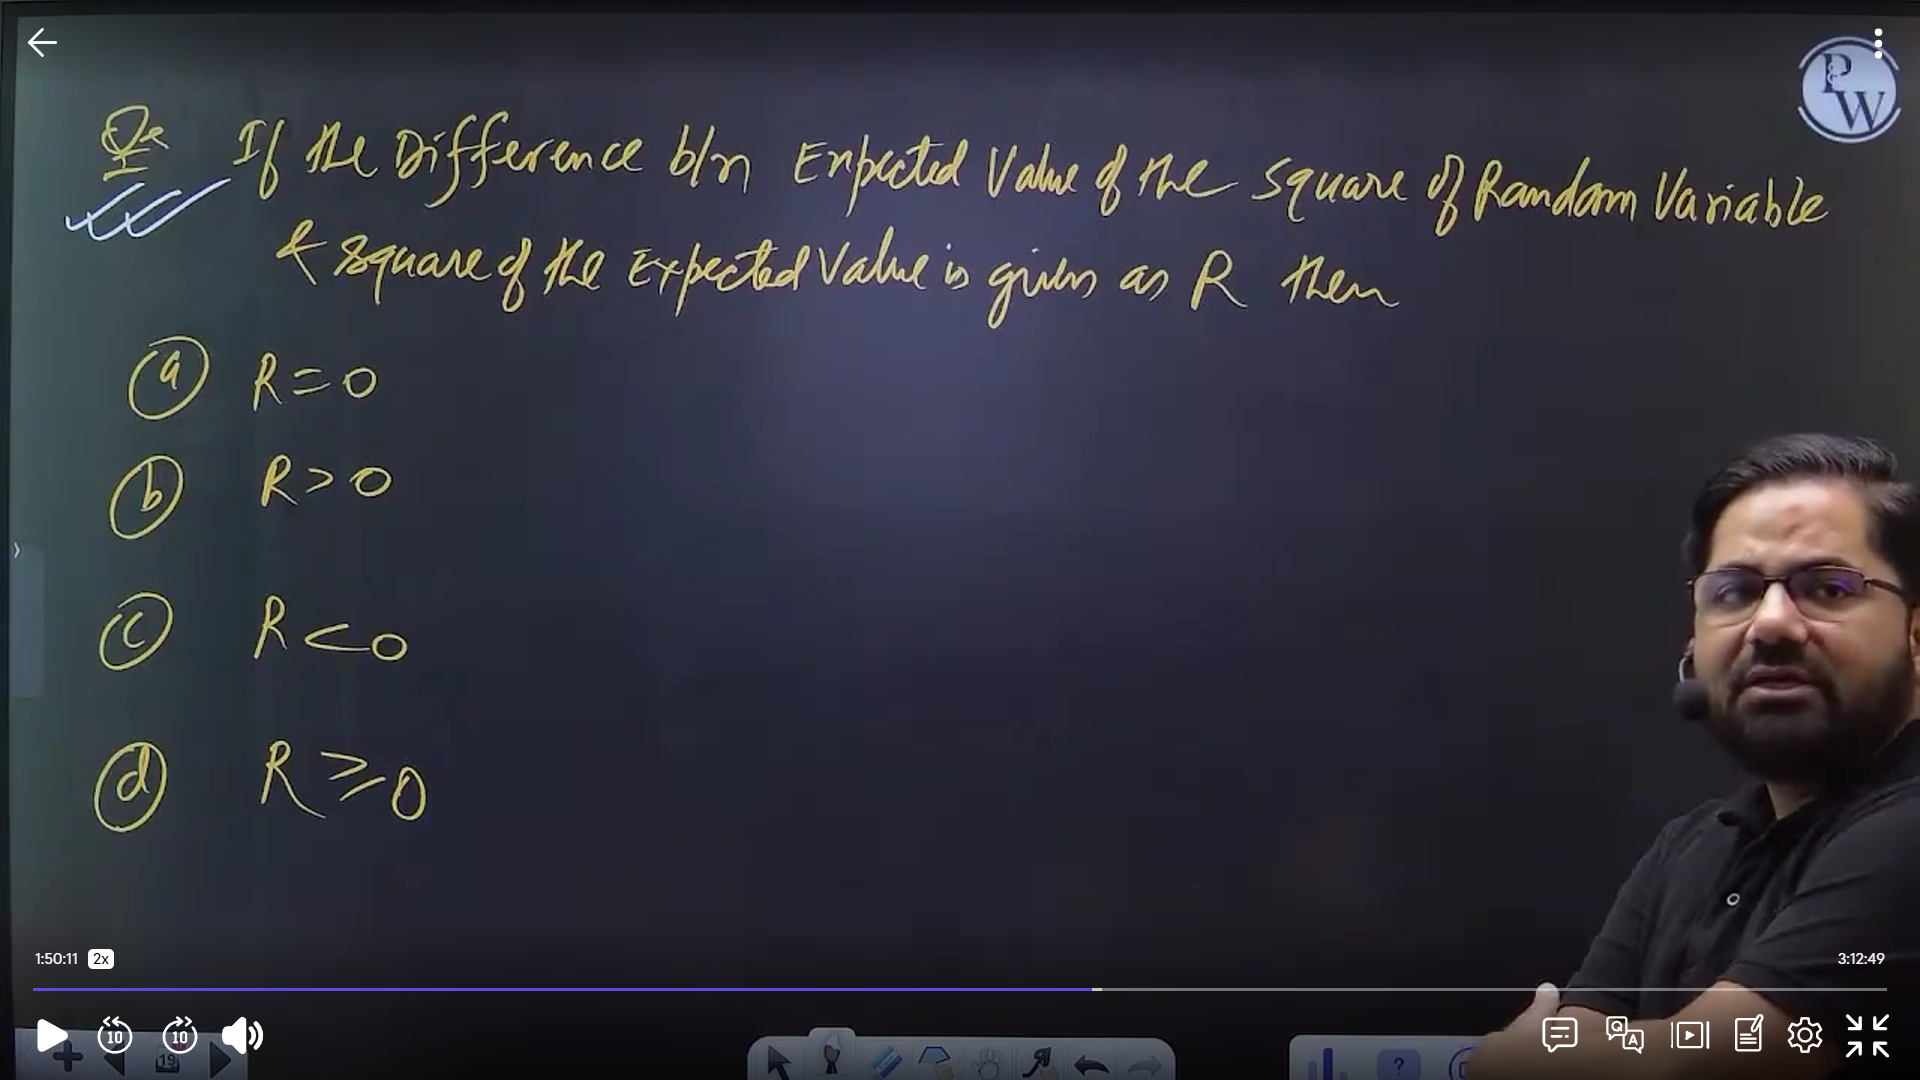 PW
Qs If the Difference b/n Expected Value of the square of Random Variable
& square of the Expected Value is given as R then
a R = 0
b R > 0
c R < 0
d R ≥ 0
1:50:11 2x 3:12:49
10 10
19 ?